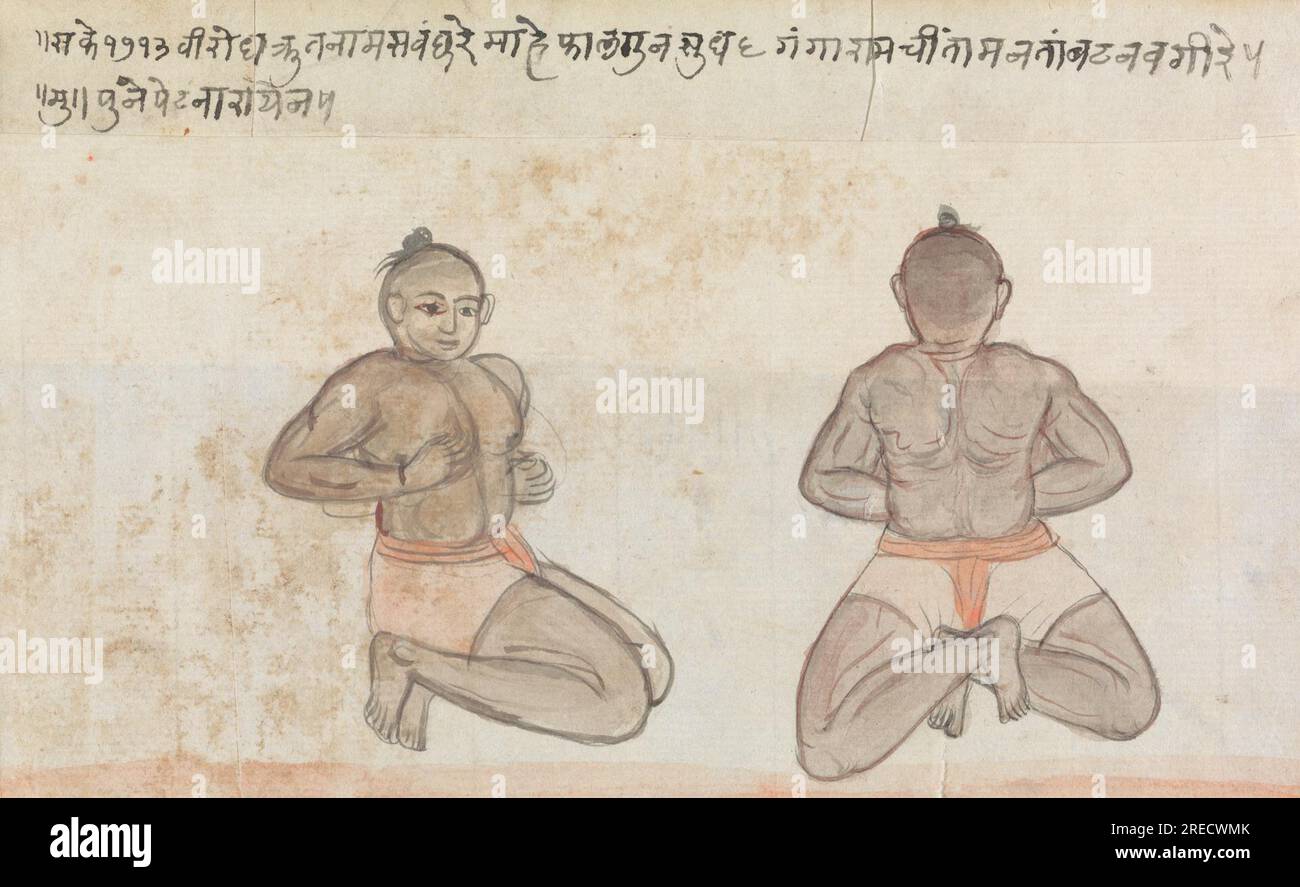 ॥सके १७१३ वीरोधा ऋुतनाम सवंछरे माहे फालगुन सुध ६ गंगाराम चींतामन तांबट नवगीरे ५
॥मु॥ पुने पेट नारायेन ५
alamy
alamy
a
alamy
a
alamy
alamy
a
a
alamy
Image ID: 2RECWMK
www.alamy.com